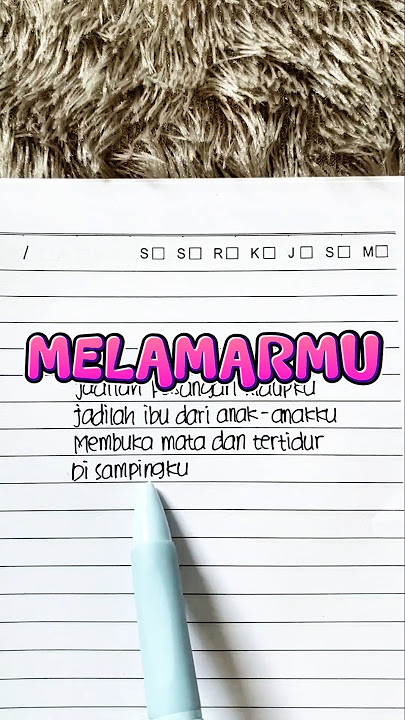 / S□ S□ R□ K□ J□ S□ M□
MELAMARMU
jadilah
jadilah ibu dari anak-anakku
Membuka mata dan tertidur
Di sampingku